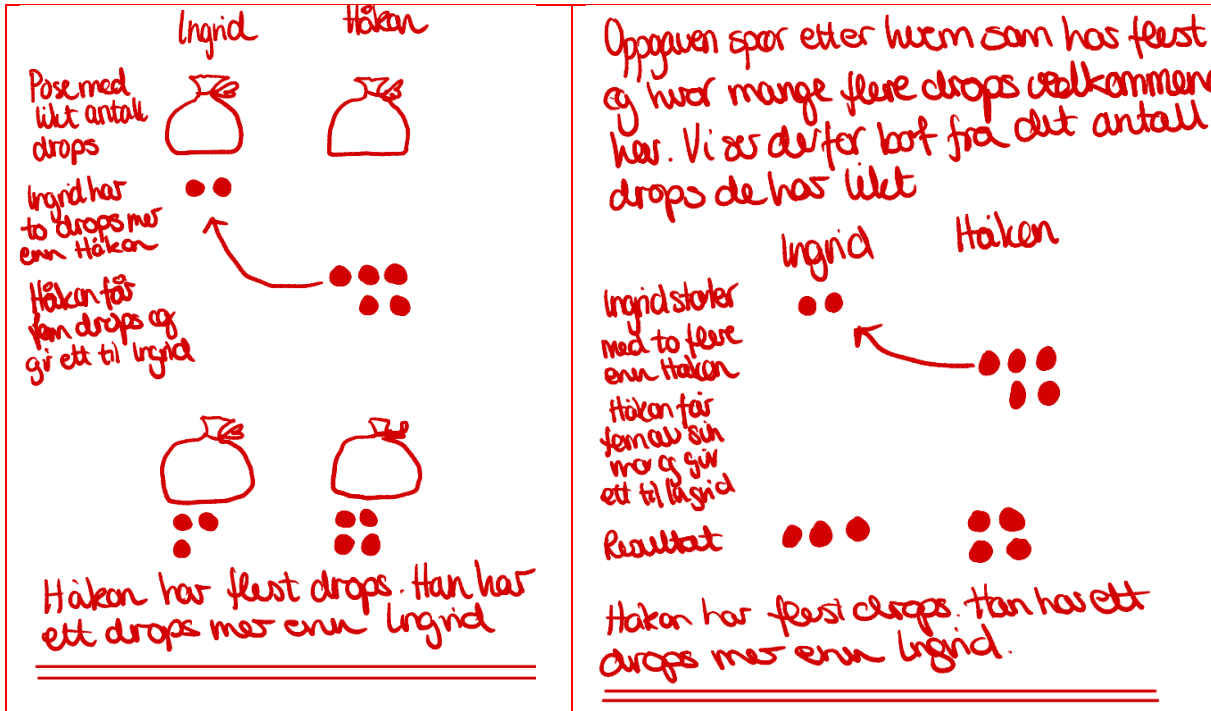 Ingrid Håkon
Pose med
likt antall
drops
Ingrid har
to drops mer
enn Håkon
Håkon får
fem drops og
gir ett til Ingrid
Håkon har flest drops. Han har
ett drops mer enn Ingrid
Oppgaven spør etter hvem som har flest
og hvor mange flere drops vedkommende
har. Vi ser derfor bort fra det antall
drops de har likt
Ingrid Håkon
Ingrid starter
med to flere
enn Håkon
Håkon får
fem av sin
mor og gir
ett til Ingrid
Resultat
Håkon har flest drops. Han har ett
drops mer enn Ingrid.